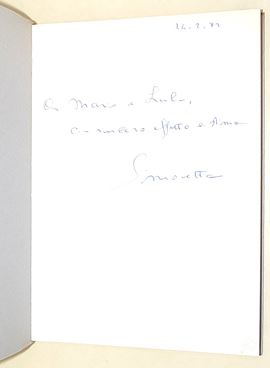 A Mario e Lulu,
con sincero affetto e stima
Simonetta